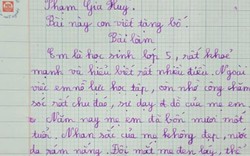 Phạm Gia Huy.
Bài này con viết tặng bố
Bài làm
Em là học sinh lớp 5, rất khoẻ
mạnh và hiểu biết rất nhiều điều. Ngoài
việc em nỗ lực học tập, còn nhờ công chăm
sóc rất chu đáo, sự dạy dỗ của mẹ em
Năm nay mẹ em đã bốn mươi một
tuổi. Nhan sắc của mẹ không đẹp, nước
da rám nắng. Đôi mắt mẹ đen láy, thể